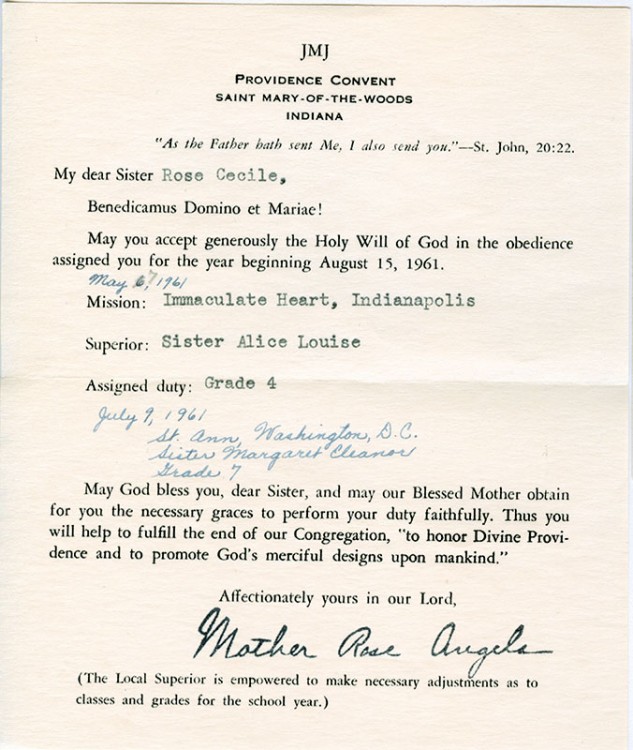 JMJ
PROVIDENCE CONVENT
SAINT MARY-OF-THE-WOODS
INDIANA
"As the Father hath sent Me, I also send you."—St. John, 20:22.
My dear Sister Rose Cecile,
Benedicamus Domino et Mariae!
May you accept generously the Holy Will of God in the obedience
assigned you for the year beginning August 15, 1961.
May 7, 1961
Mission: Immaculate Heart, Indianapolis
Superior: Sister Alice Louise
Assigned duty: Grade 4
July 9, 1961
St. Ann, Washington, D.C.
Sister Margaret Eleanor
Grade 7
May God bless you, dear Sister, and may our Blessed Mother obtain
for you the necessary graces to perform your duty faithfully. Thus you
will help to fulfill the end of our Congregation, "to honor Divine Provi-
dence and to promote God's merciful designs upon mankind."
Affectionately yours in our Lord,
Mother Rose Angela
(The Local Superior is empowered to make necessary adjustments as to
classes and grades for the school year.)